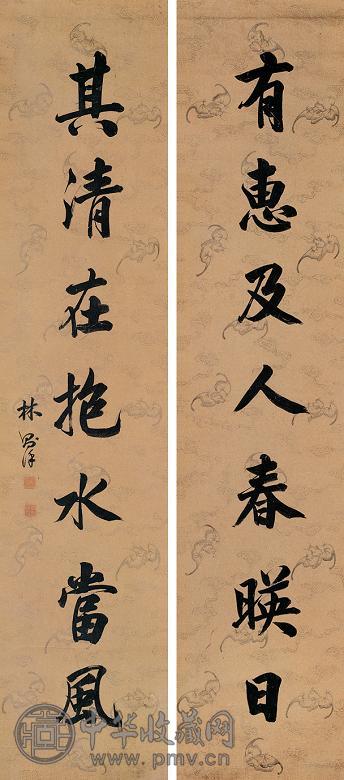 有惠及人春暎日
其清在抱水當風
林則徐
中华收藏网
www.pmv.cn